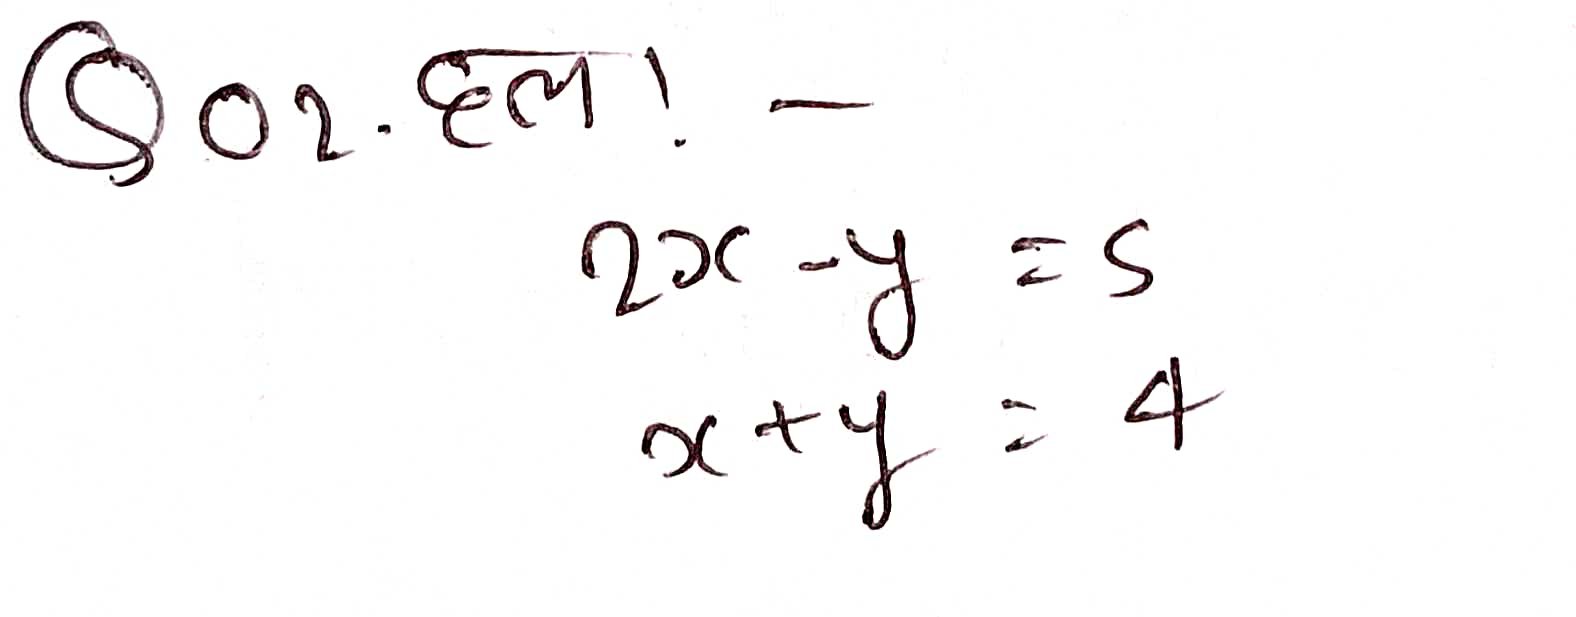 Q 02. हल! -
2x - y = 5
x + y = 4